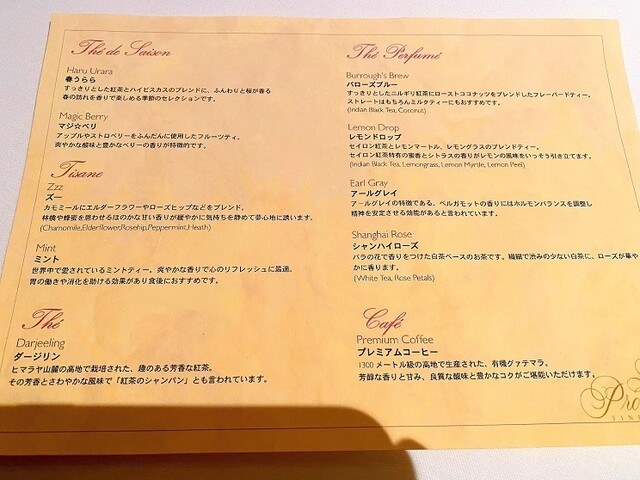 Thé de Saison
Haru Urara
春うらら
すっきりとした紅茶とハイビスカスのブレンドに、ふんわりと桜が香る
春の訪れを香りで楽しめる季節のセレクションです。
Magic Berry
マジ☆ベリ
アップルやストロベリーをふんだんに使用したフルーツティ。
爽やかな酸味と豊かなベリーの香りが特徴的です。
Tisane
Zzz
ズー
カモミールにエルダーフラワーやローズヒップなどをブレンド。
林檎や蜂蜜を思わせるほのかな甘い香りが緩やかに気持ちを静めて夢心地に誘います。
(Chamomile,Elderflower,Rosehip,Peppermint,Heath)
Mint
ミント
世界中で愛されているミントティー。爽やかな香りで心のリフレッシュに最適。
胃の働きや消化を助ける効果があり食後におすすめです。
Thé
Darjeeling
ダージリン
ヒマラヤ山麓の高地で栽培された、趣のある芳香な紅茶。
その芳香とさわやかな風味で「紅茶のシャンパン」とも言われています。
Thé Perfumé
Burrough's Brew
バローズブルー
すっきりとしたニルギリ紅茶にローストココナッツをブレンドしたフレーバードティー。
ストレートはもちろんミルクティーにもおすすめです。
(Indian Black Tea, Coconut)
Lemon Drop
レモンドロップ
セイロン紅茶とレモンマートル、レモングラスのブレンドティー。
セイロン紅茶特有の蜜香とシトラスの香りがレモンの風味をいっそう引き立てます。
(Indian Black Tea, Lemongrass, Lemon Myrtle, Lemon Peel)
Earl Gray
アールグレイ
アールグレイの特徴である、ベルガモットの香りにはホルモンバランスを調整し
精神を安定させる効能があると言われています。
Shanghai Rose
シャンハイローズ
バラの花で香りをつけた白茶ベースのお茶です。繊細で渋みの少ない白茶に、ローズが華や
かに香ります。
(White Tea, Rose Petals)
Café
Premium Coffee
プレミアムコーヒー
1300 メートル級の高地で生産された、有機グァテマラ。
芳醇な香りと甘み、良質な酸味と豊かなコクがご堪能いただけます。